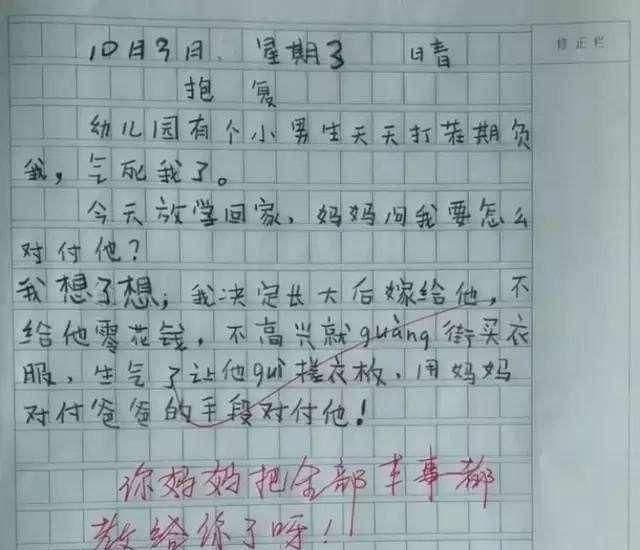 10月3日. 星期3 日晴
修正栏
抱复
幼儿园有个小男生天天打茬期负
我，气死我了。
今天放学回家，妈妈问我要怎么
对付他？
我想了想，我决定长大后嫁给他，不
给他零花钱，不高兴就guàng街买衣
服，生气了让他guì搓衣板，用妈妈
对付爸爸的手段对付他！
你妈妈把全部本事都
教给你了呀！